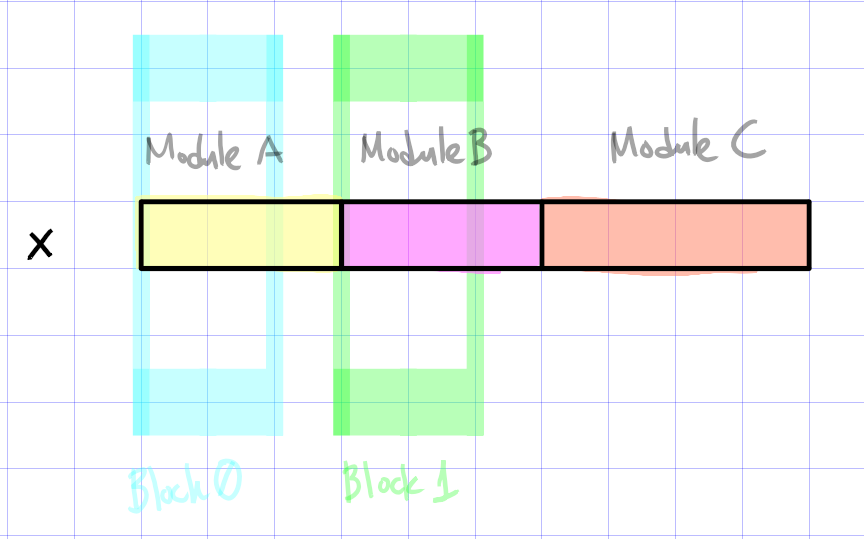 Module A
Module B
Module C
x
Block 0
Block 1